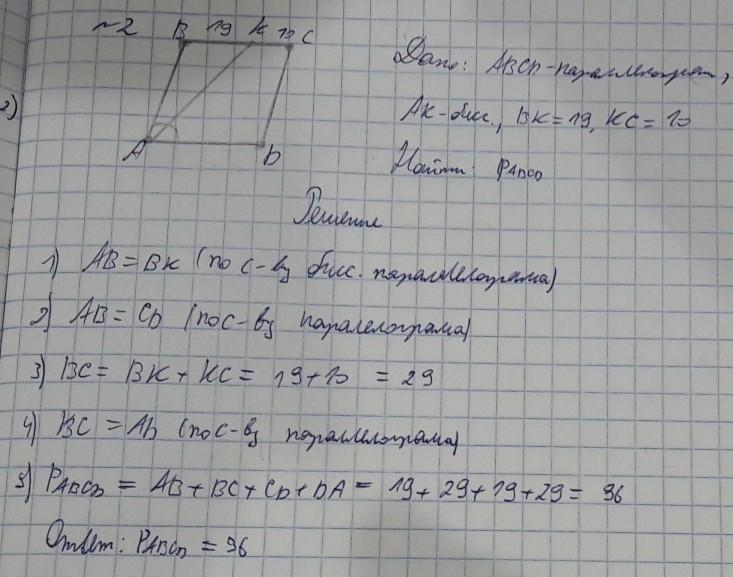 №2
B 19 K 10 C
2)
A D
Дано: ABCD-параллелограм,
AK-бисс., BK=19, KC=10
Найти: PABCD
Решение
1) AB=BK (по с-ву бисс. параллелограма)
2) AB=CD (по с-ву паралелограма)
3) BC= BK+KC= 19+10 = 29
4) BC=AD (по с-ву параллелограма)
5) PABCD = AB+BC+CD+DA = 19+29+19+29= 96
Ответ: PABCD = 96